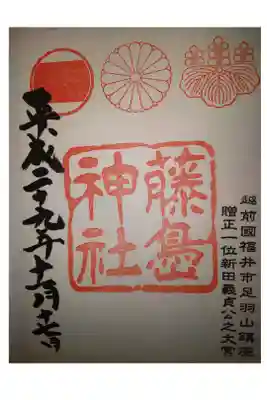 越前國福井市足羽山鎮座
贈正一位新田義貞公之大宮
藤島
神社
平成二十九年十一月